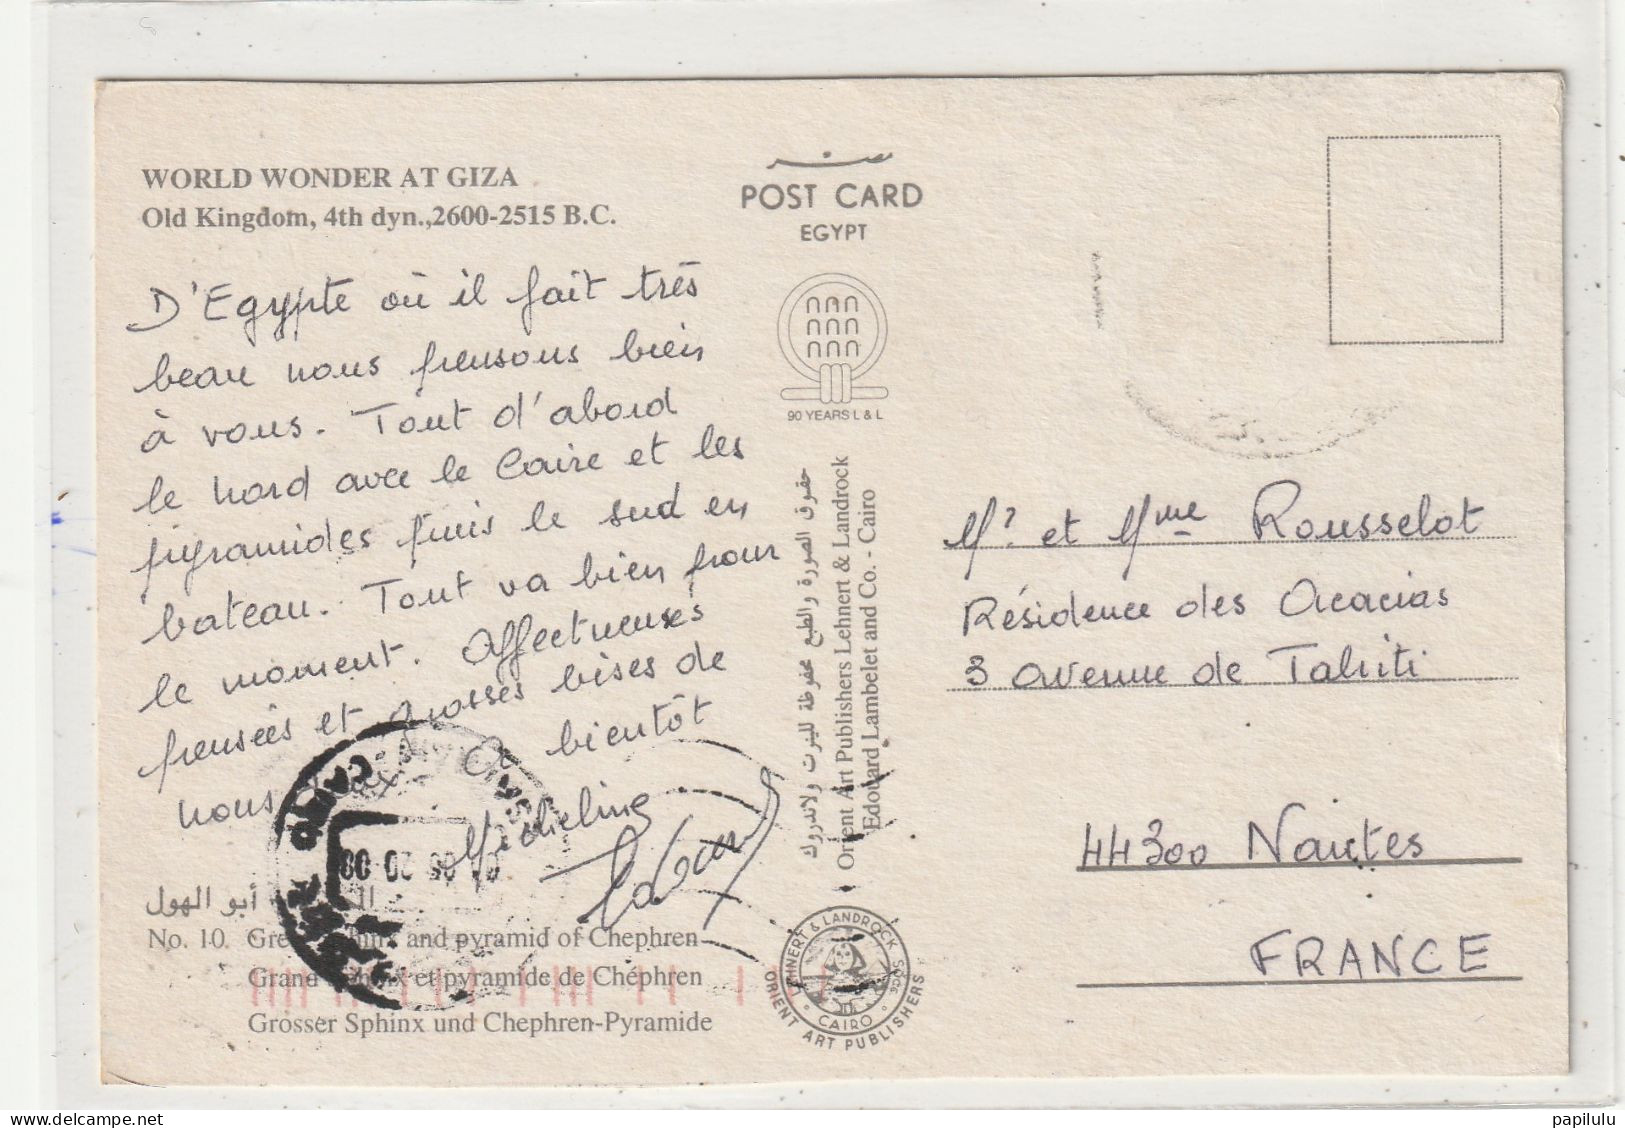 WORLD WONDER AT GIZA
Old Kingdom, 4th dyn.,2600-2515 B.C.
D'Egypte où il fait très
beau nous pensons bien
à vous. Tout d'abord
le nord avec le Caire et les
pyramides puis le sud en
bateau. Tout va bien pour
le moment. Affectueuses
pensées et grosses bises de
nous deux A bientôt
Micheline
أبو الهول
No. 10. Great Sphinx and pyramid of Chephren
Grand Sphinx et pyramide de Chéphren
Grosser Sphinx und Chephren-Pyramide
CAIRO
مصر
POST CARD
EGYPT
90 YEARS L & L
حقوق الصورة والطبع محفوظة للينرت ولاندروك
Orient Art Publishers Lehnert & Landrock
Edouard Lambelet and Co. - Cairo
LEHNERT & LANDROCK SUCC
CAIRO
ORIENT ART PUBLISHERS
Mr et Mme Rousselot
Résidence des Acacias
3 avenue de Tahiti
44300 Nantes
FRANCE
papilulu